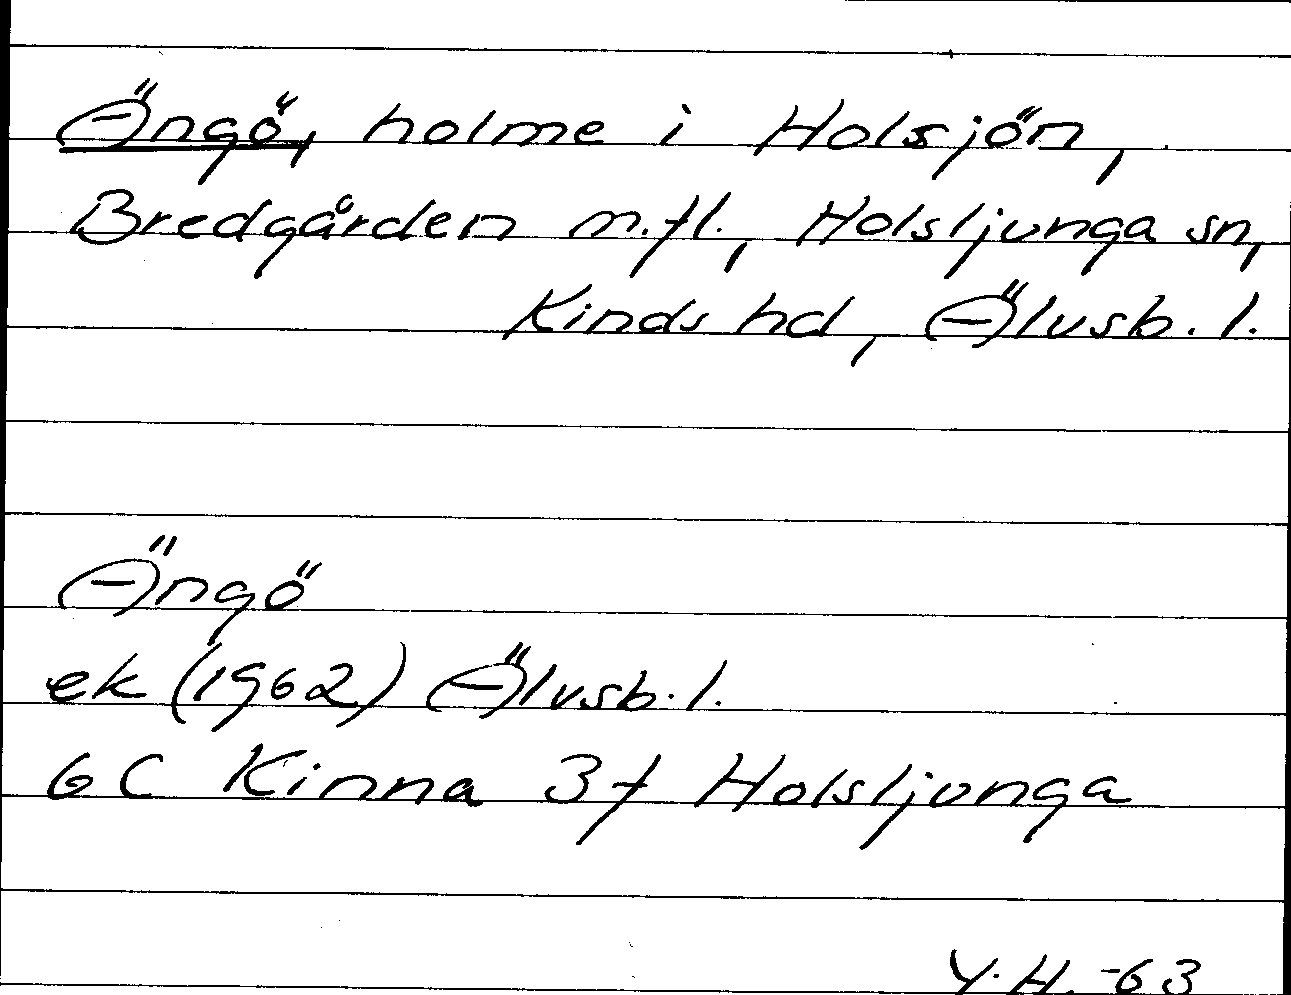 Ängö, holme i Holsjön,
Bredgården m.fl., Holsljunga sn,
Kinds hd, Älvsb. l.
Ängö
ek (1962) Älvsb. l.
6 C Kinna 3f Holsljunga
Y. H. -63